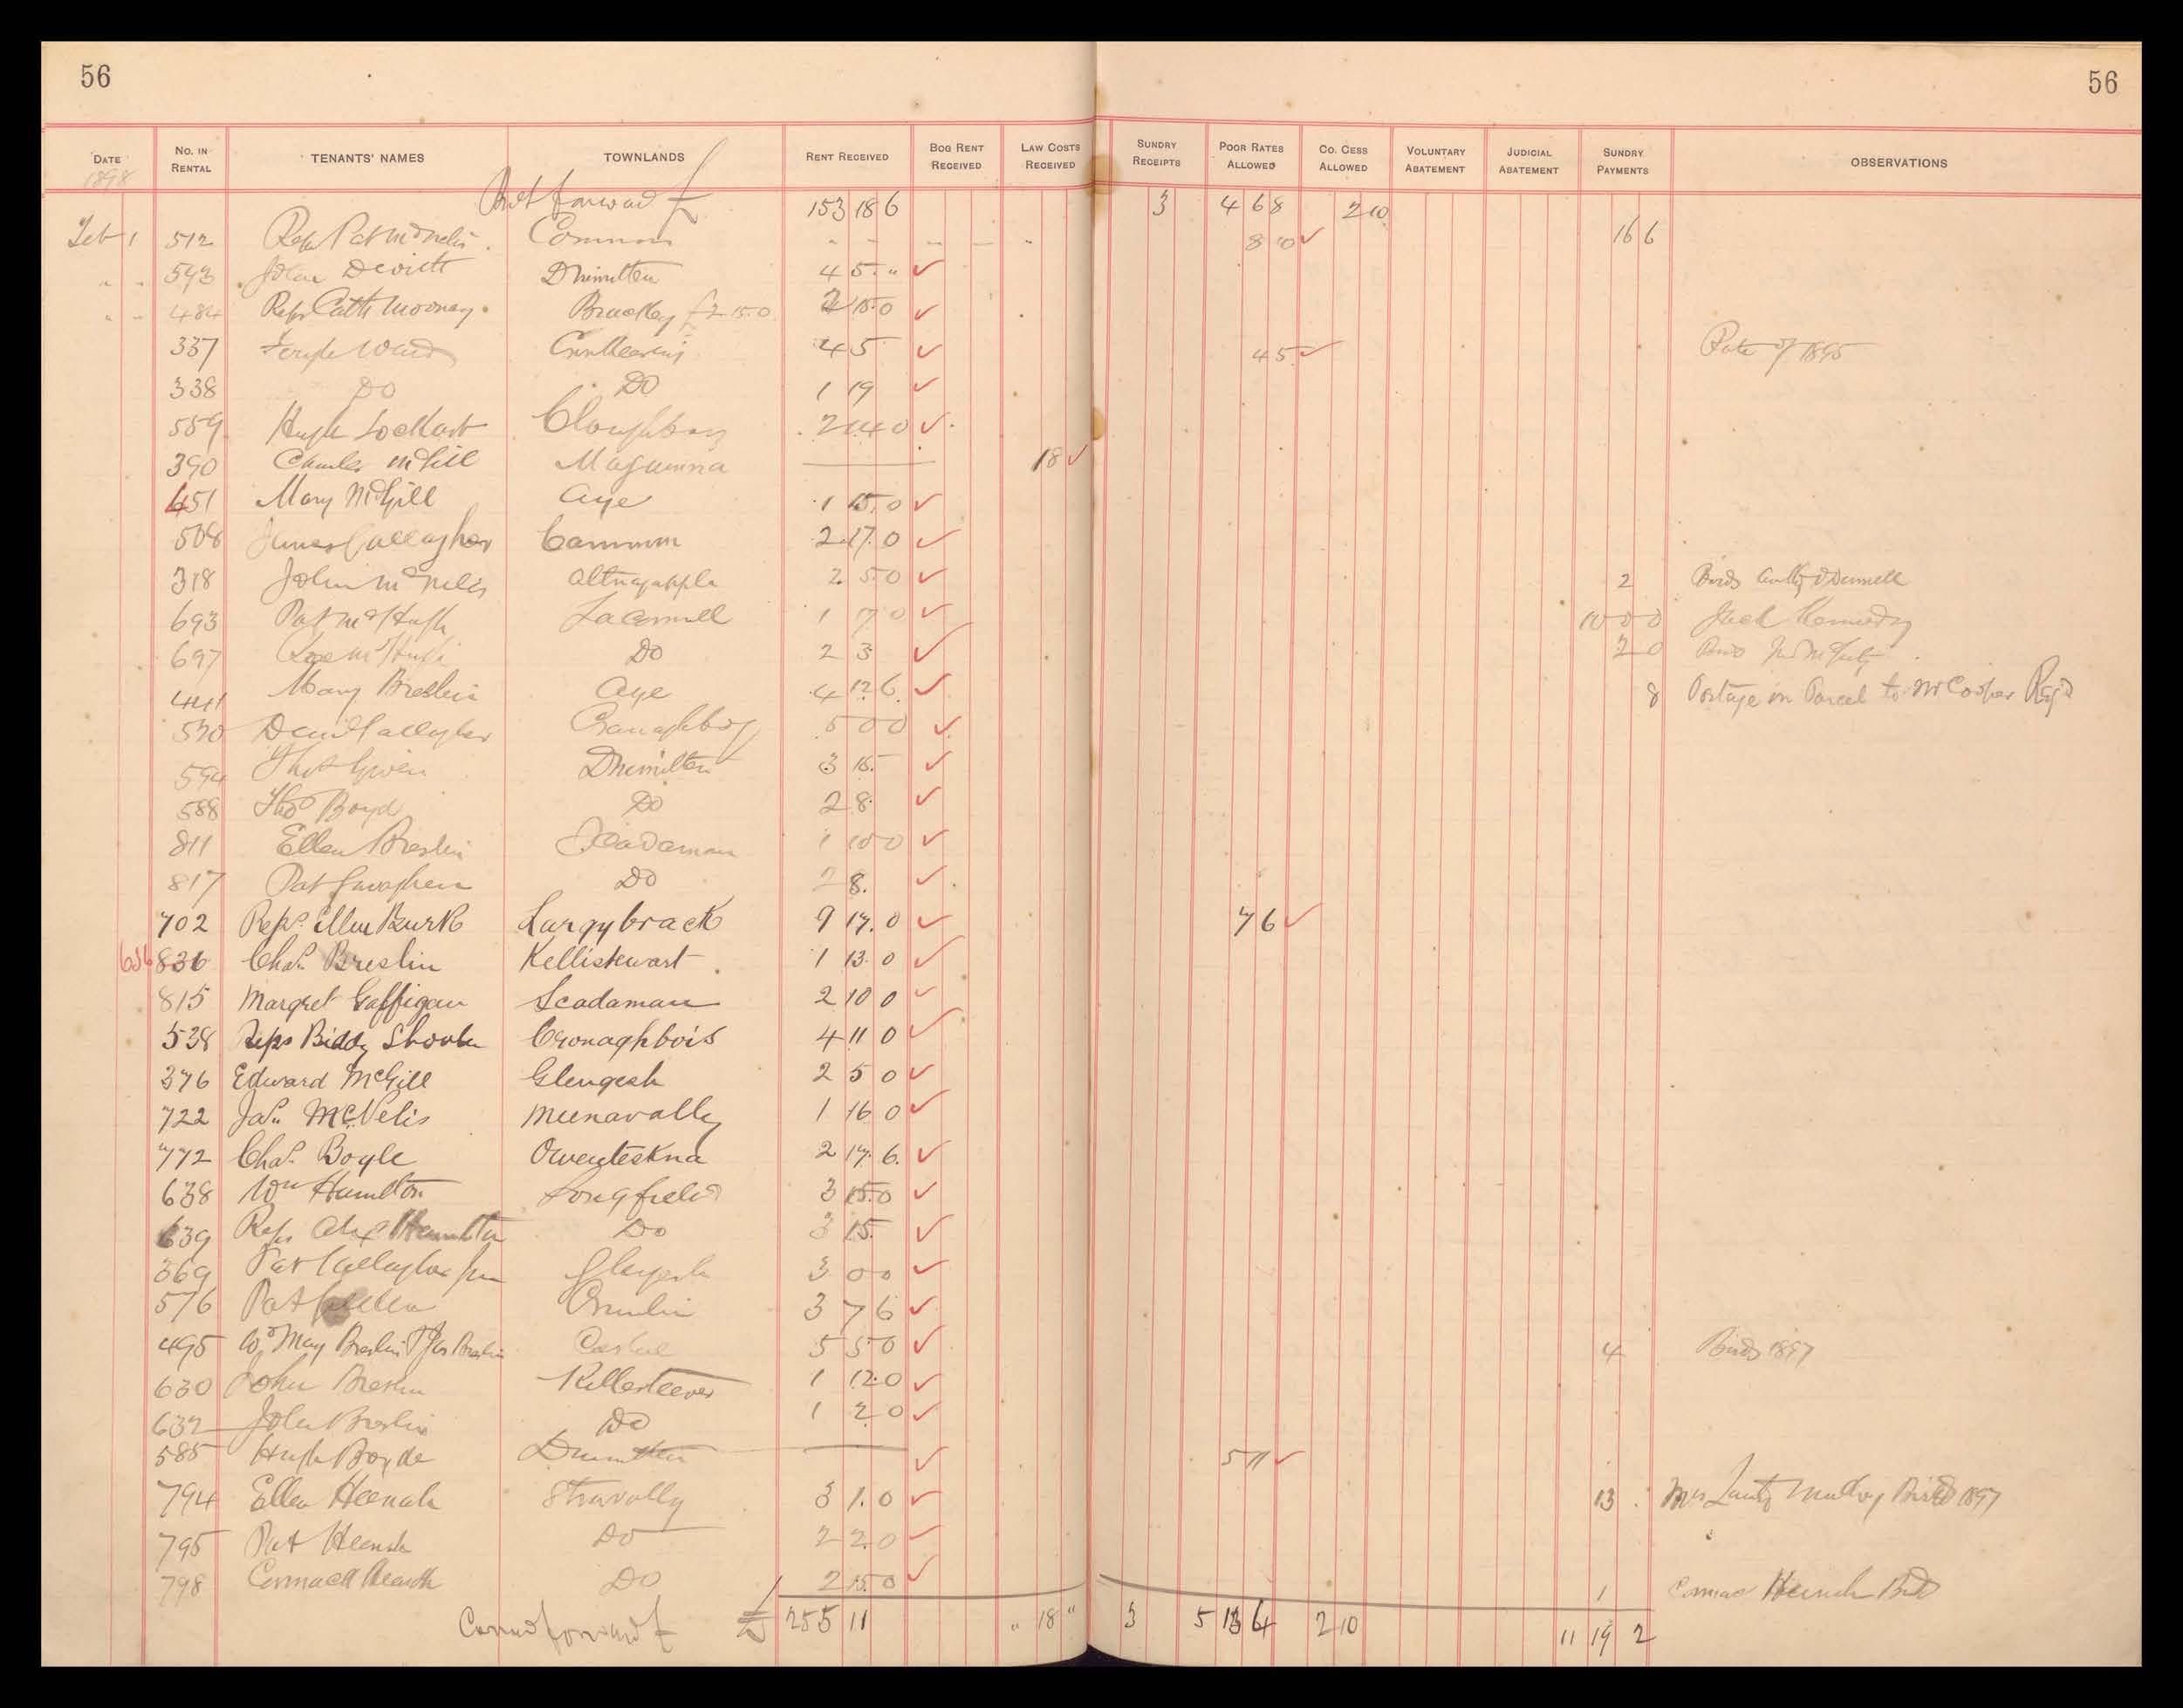 56 56
DATE 1898 No. IN RENTAL TENANTS' NAMES TOWNLANDS RENT RECEIVED BOG RENT RECEIVED LAW COSTS RECEIVED SUNDRY RECEIPTS POOR RATES ALLOWED CO. CESS ALLOWED VOLUNTARY ABATEMENT JUDICIAL ABATEMENT SUNDRY PAYMENTS OBSERVATIONS
Brot forward £ 153 18 6 3 4 6 8 2 10
Feb 1 512 Reps Pat McNelis Common 8 0 16 6
" " 593 John Devitt Drimilten 4 5 "
" " 484 Reps Cath Mooney Brackey £2.15.0 2 15 0
337 Ward 4 5 4 5 Rate of 1895
338 Do Do 1 19
559 Hugh Lockart Cloughboy 2 14 0
390 Charles McGill Magumna 18
451 Mary McGill Aye 1 15 0
508 James Gallagher Common 2 17 0
318 John McNelis Altnagapple 2 5 0 2 Birds O'Donnell
693 Pat McHugh Laconnell 1 7 0 10 0 0 Jack Kennedy
697 McHugh Do 2 3 2 0
441 Mary Breslin Aye 4 12 6 8 Postage on Parcel to Mr Cooper Regd
530 Gallagher Cronaghboy 5 0 0
594 Given Drimilten 3 15
588 Thos Boyd Do 2 8
811 Ellen Breslin Scadaman 1 10 0
817 Pat Do 2 8
702 Reps Ellen Burk Largybrack 9 17 0 7 6
656 836 Chas. Breslin Kellistewart 1 13 0
815 Margret Gaffigan Scadaman 2 10 0
538 Reps Biddy Shovlin Cronaghbois 4 11 0
376 Edward McGill Glengesh 2 5 0
722 Jas. McNelis Meenavally 1 16 0
772 Chas. Boyle Owenteskna 2 17 6
638 Wm Hamilton Longfield 3 15 0
639 Reps Alex Hamilton Do 3 15
369 Pat Gallagher Jun Glengesh 3 0 0
576 Pat Crumlin 3 7 6
495 Wd Mary Breslin & Jas Breslin Cashel 5 5 0 4 Birds 1897
630 John Breslin Killasteever 1 12 0
632 John Breslin Do 1 2 0
585 Hugh Boyde 5 11
794 Ellen Heenah Stravally 3 1 0 13 Mrs Mulloy Birds 1897
795 Pat Heenah Do 2 2 0
798 Cormack Heenah Do 2 15 0 1 Cormac Heenah Birds
Carried forward £ 255 11 " 18 " 3 5 13 4 2 10 11 19 2